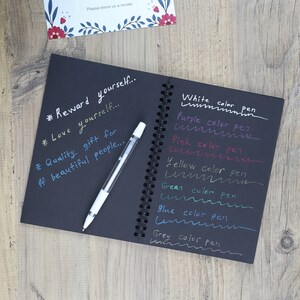 Please leave us a review
* Reward yourself...
* Love yourself...
* Quality gift for
beautiful people...
White color pen
Purple color pen
Pink color pen
Yellow color pen
Green color pen
Blue color pen
Grey color pen